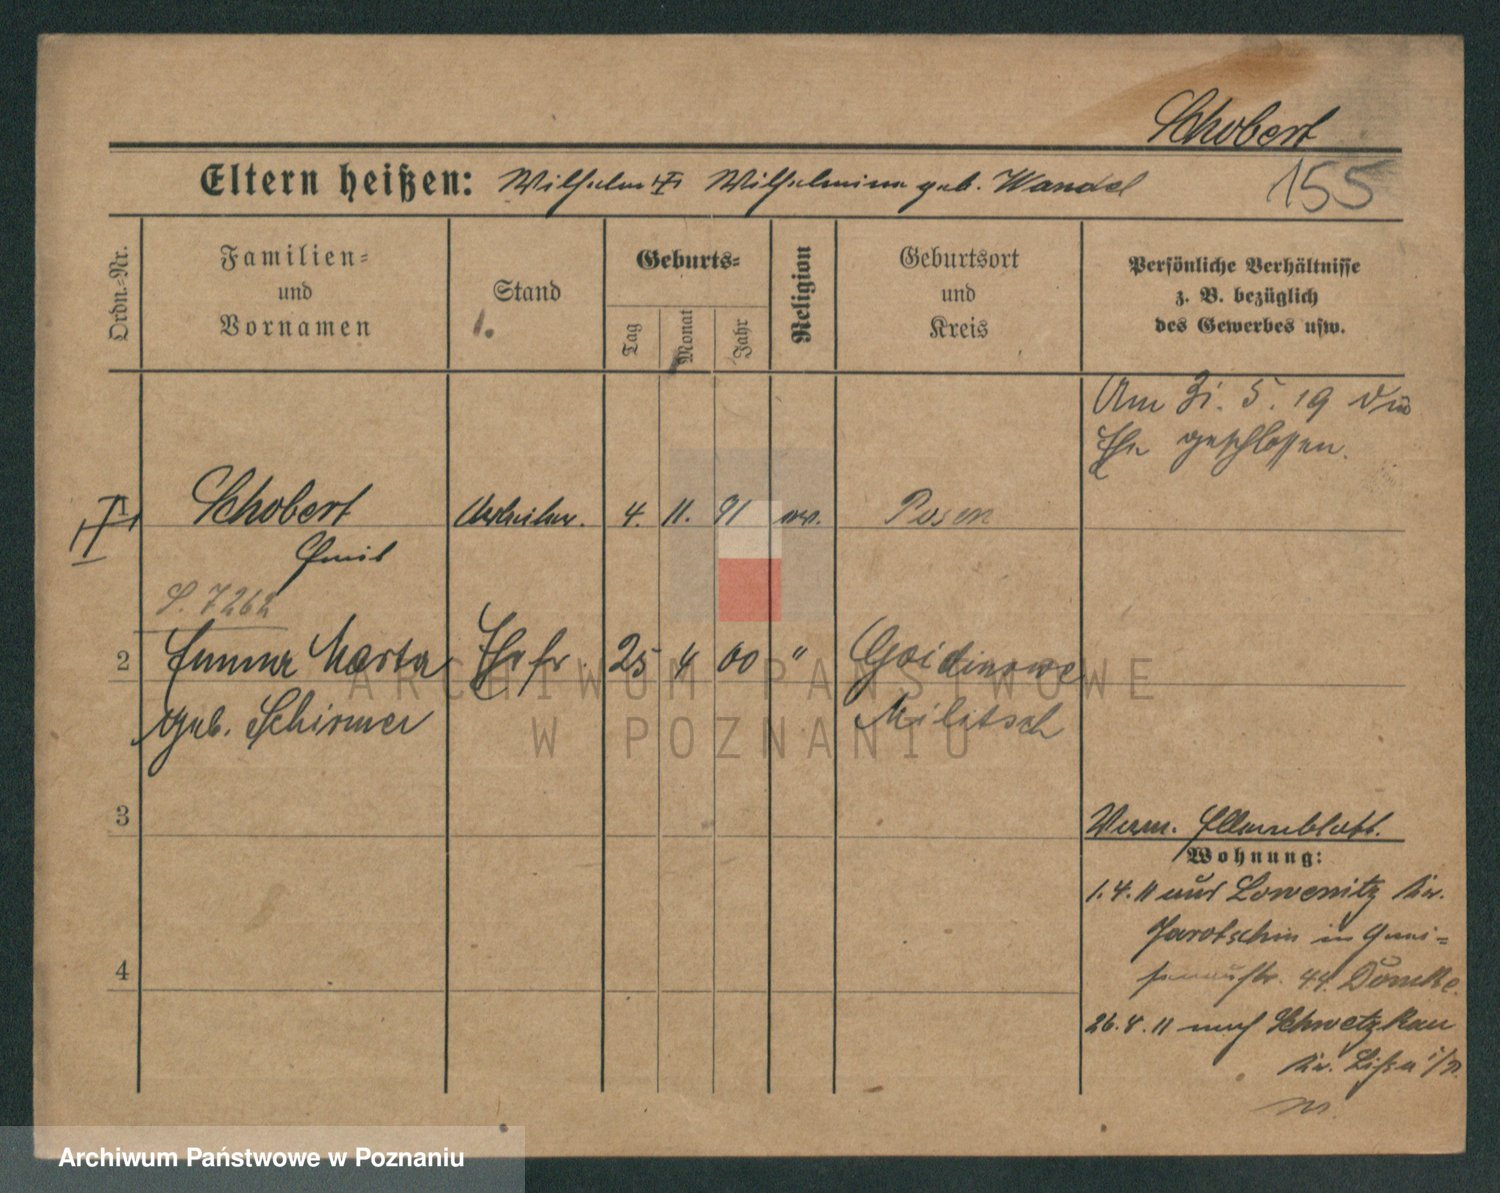 Schobert
Eltern heißen: Wilhelm Wilhelmine geb. Wandel
155
Ordn.-Nr.
Familien- und Vornamen
Stand
1.
Geburts-
Tag Monat Jahr
Religion
Geburtsort und Kreis
Persönliche Verhältnisse
z. B. bezüglich
des Gewerbes usw.
Am 31. 5. 19 die
Ehe geschlossen.
1 Schobert Arbeiter. 4. 11. 91 ev. Posen
Emil
S. 7262
2 Emma Marta Ehefr. 25 4 00 "
geb. Schirmer Militsch
3
Verm. Elternblatt.
Wohnung:
1.4.11 aus Lowenitz Kr.
Jarotschin in Gnei-
senaustr. 44. Domke.
4
26.4.11 nach Schwetzkau
Kr. Lissa i/P.
ARCHIWUM PAŃSTWOWE
W POZNANIU
Archiwum Państwowe w Poznaniu